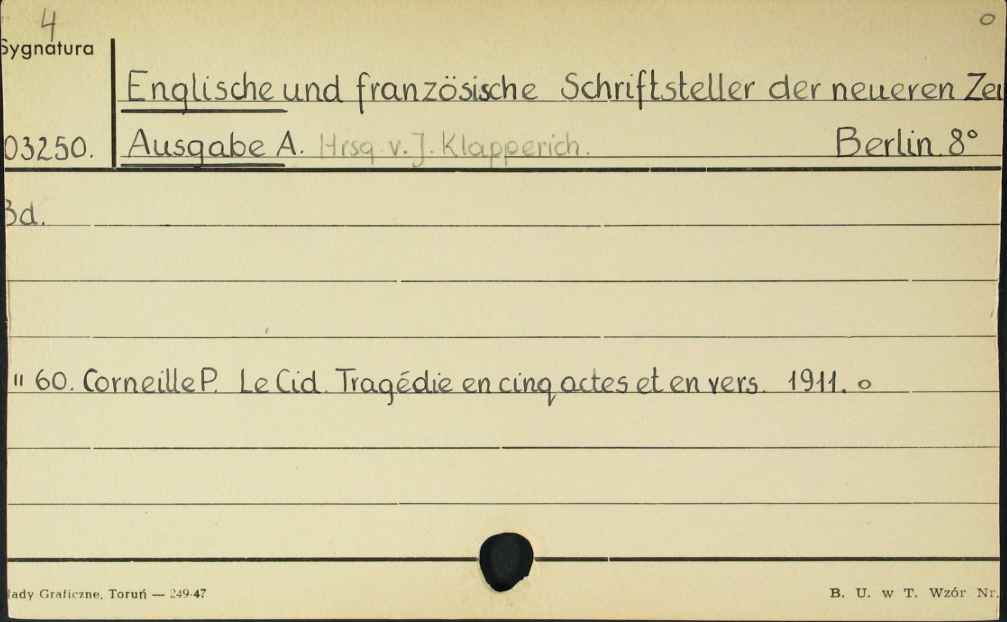 4
Sygnatura
Englische und französische Schriftsteller der neueren Zei
03250. Ausgabe A. Hrsg v. J. Klapperich. Berlin 8°
Bd.
" 60. Corneille P. Le Cid. Tragédie en cinq actes et en vers. 1911. o
łady Graficzne, Toruń — 249-47
B. U. w T. Wzór Nr.